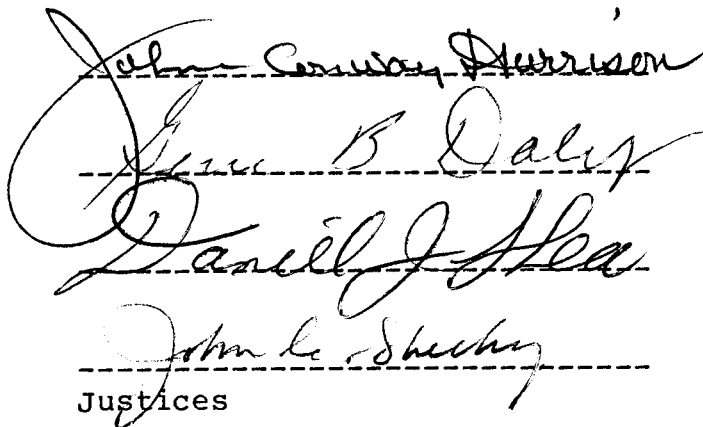 John Conway Harrison
Gene B Daly
Daniel J Shea
John C. Sheehy
Justices